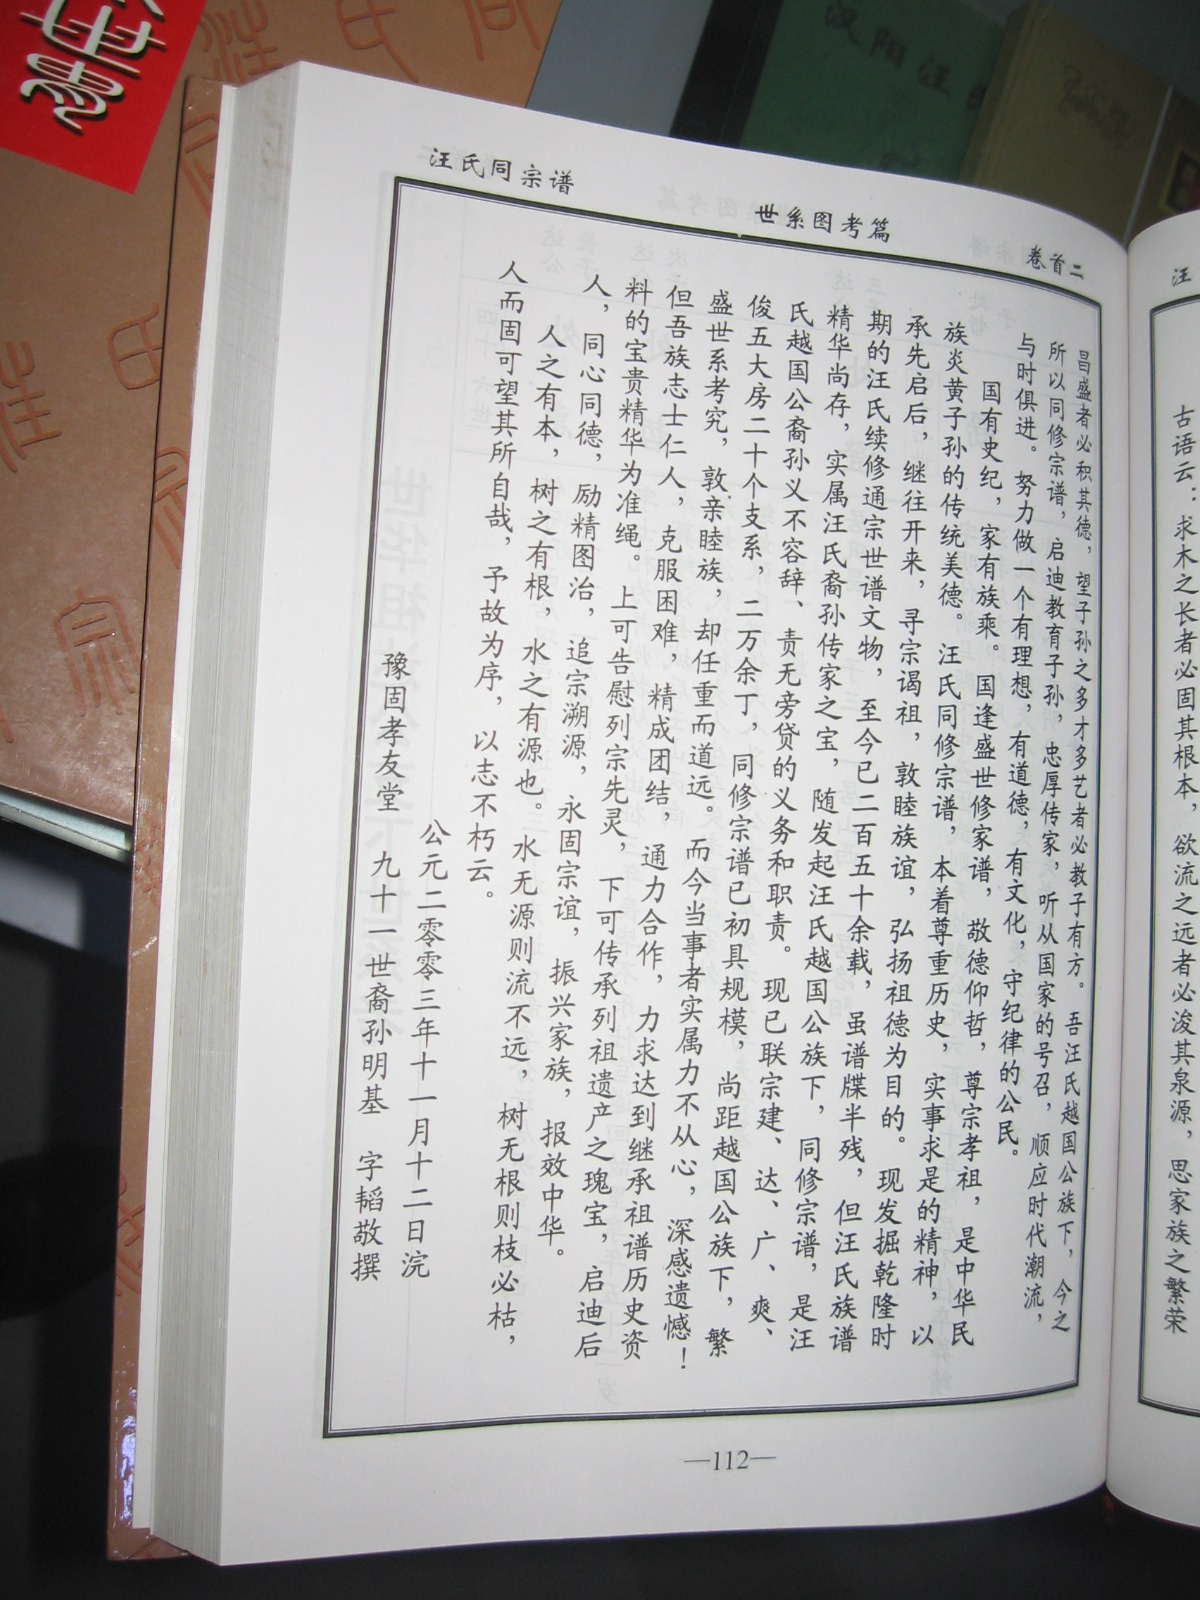 汪氏同宗谱
世系图考篇
卷首二
昌盛者必积其德，望子孙之多才多艺者必教子有方。吾汪氏越国公族下，今之
所以同修宗谱，启迪教育子孙，忠厚传家，听从国家的号召，顺应时代潮流，
与时俱进。努力做一个有理想，有道德，有文化，守纪律的公民。
国有史纪，家有族乘。国逢盛世修家谱，敬德仰哲，尊宗孝祖，是中华民
族炎黄子孙的传统美德。汪氏同修宗谱，本着尊重历史，实事求是的精神，以
承先启后，继往开来，寻宗谒祖，敦睦族谊，弘扬祖德为目的。现发掘乾隆时
期的汪氏续修通宗世谱文物，至今已二百五十余载，虽谱牒半残，但汪氏族谱
精华尚存，实属汪氏裔孙传家之宝，随发起汪氏越国公族下，同修宗谱，是汪
氏越国公裔孙义不容辞、责无旁贷的义务和职责。现已联宗建、达、广、爽、
俊五大房二十个支系，二万余丁，同修宗谱已初具规模，尚距越国公族下，繁
盛世系考究，敦亲睦族，却任重而道远。而今当事者实属力不从心，深感遗憾！
但吾族志士仁人，克服困难，精成团结，通力合作，力求达到继承祖谱历史资
料的宝贵精华为准绳。上可告慰列宗先灵，下可传承列祖遗产之瑰宝，启迪后
人，同心同德，励精图治，追宗溯源，永固宗谊，振兴家族，报效中华。
人之有本，树之有根，水之有源也。水无源则流不远，树无根则枝必枯，
人而固可望其所自哉，予故为序，以志不朽云。
公元二零零三年十一月十二日浣
豫固孝友堂 九十一世裔孙明基 字韬敬撰
—112—
汪
古语云：求木之长者必固其根本，欲流之远者必浚其泉源，思家族之繁荣
汉阳汪